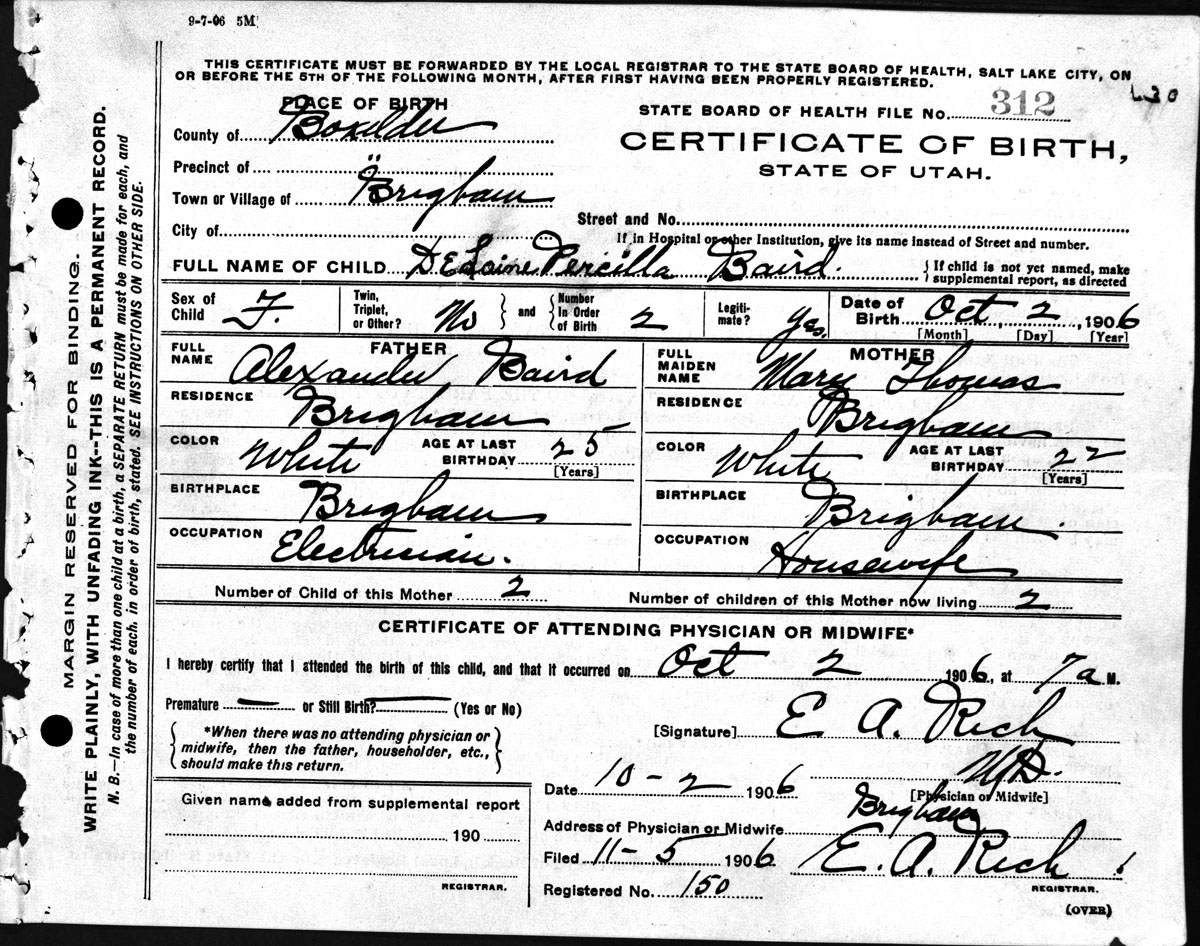 9-7-06 5M
THIS CERTIFICATE MUST BE FORWARDED BY THE LOCAL REGISTRAR TO THE STATE BOARD OF HEALTH, SALT LAKE CITY, ON
OR BEFORE THE 5TH OF THE FOLLOWING MONTH, AFTER FIRST HAVING BEEN PROPERLY REGISTERED.
MARGIN RESERVED FOR BINDING.
WRITE PLAINLY, WITH UNFADING INK--THIS IS A PERMANENT RECORD.
N. B.—In case of more than one child at a birth, a SEPARATE RETURN must be made for each, and
the number of each. in order of birth, stated. SEE INSTRUCTIONS ON OTHER SIDE.
PLACE OF BIRTH
County of Boxelder
Precinct of "
Town or Village of Brigham
City of
STATE BOARD OF HEALTH FILE No. 312
CERTIFICATE OF BIRTH,
STATE OF UTAH.
Street and No.
If in Hospital or other Institution, give its name instead of Street and number.
FULL NAME OF CHILD DELaine Percilla Baird. { If child is not yet named, make
supplemental report, as directed
Sex of Child F. Twin, Triplet, or Other? No } and { Number In Order of Birth 2 Legiti-mate? yes. Date of Birth Oct 2, 1906
[Month] [Day] [Year]
FATHER
FULL NAME Alexander Baird
RESIDENCE Brigham
COLOR White AGE AT LAST BIRTHDAY 25
[Years]
BIRTHPLACE Brigham
OCCUPATION Electrician.
MOTHER
FULL MAIDEN NAME Mary Thomas
RESIDENCE Brigham
COLOR White AGE AT LAST BIRTHDAY 22
[Years]
BIRTHPLACE Brigham.
OCCUPATION Housewife
Number of Child of this Mother 2 Number of children of this Mother now living 2
CERTIFICATE OF ATTENDING PHYSICIAN OR MIDWIFE*
I hereby certify that I attended the birth of this child, and that it occurred on Oct 2 1906, at 7a M.
Premature — or Still Birth? — (Yes or No)
*When there was no attending physician or
midwife, then the father, householder, etc.,
should make this return.
[Signature] E. A. Rich
M.D.
Date 10-2 1906 [Physician or Midwife]
Address of Physician or Midwife Brigham
Filed 11-5 1906. E. A. Rich
REGISTRAR.
Registered No. 150
(OVER)
Given name added from supplemental report
190
REGISTRAR.